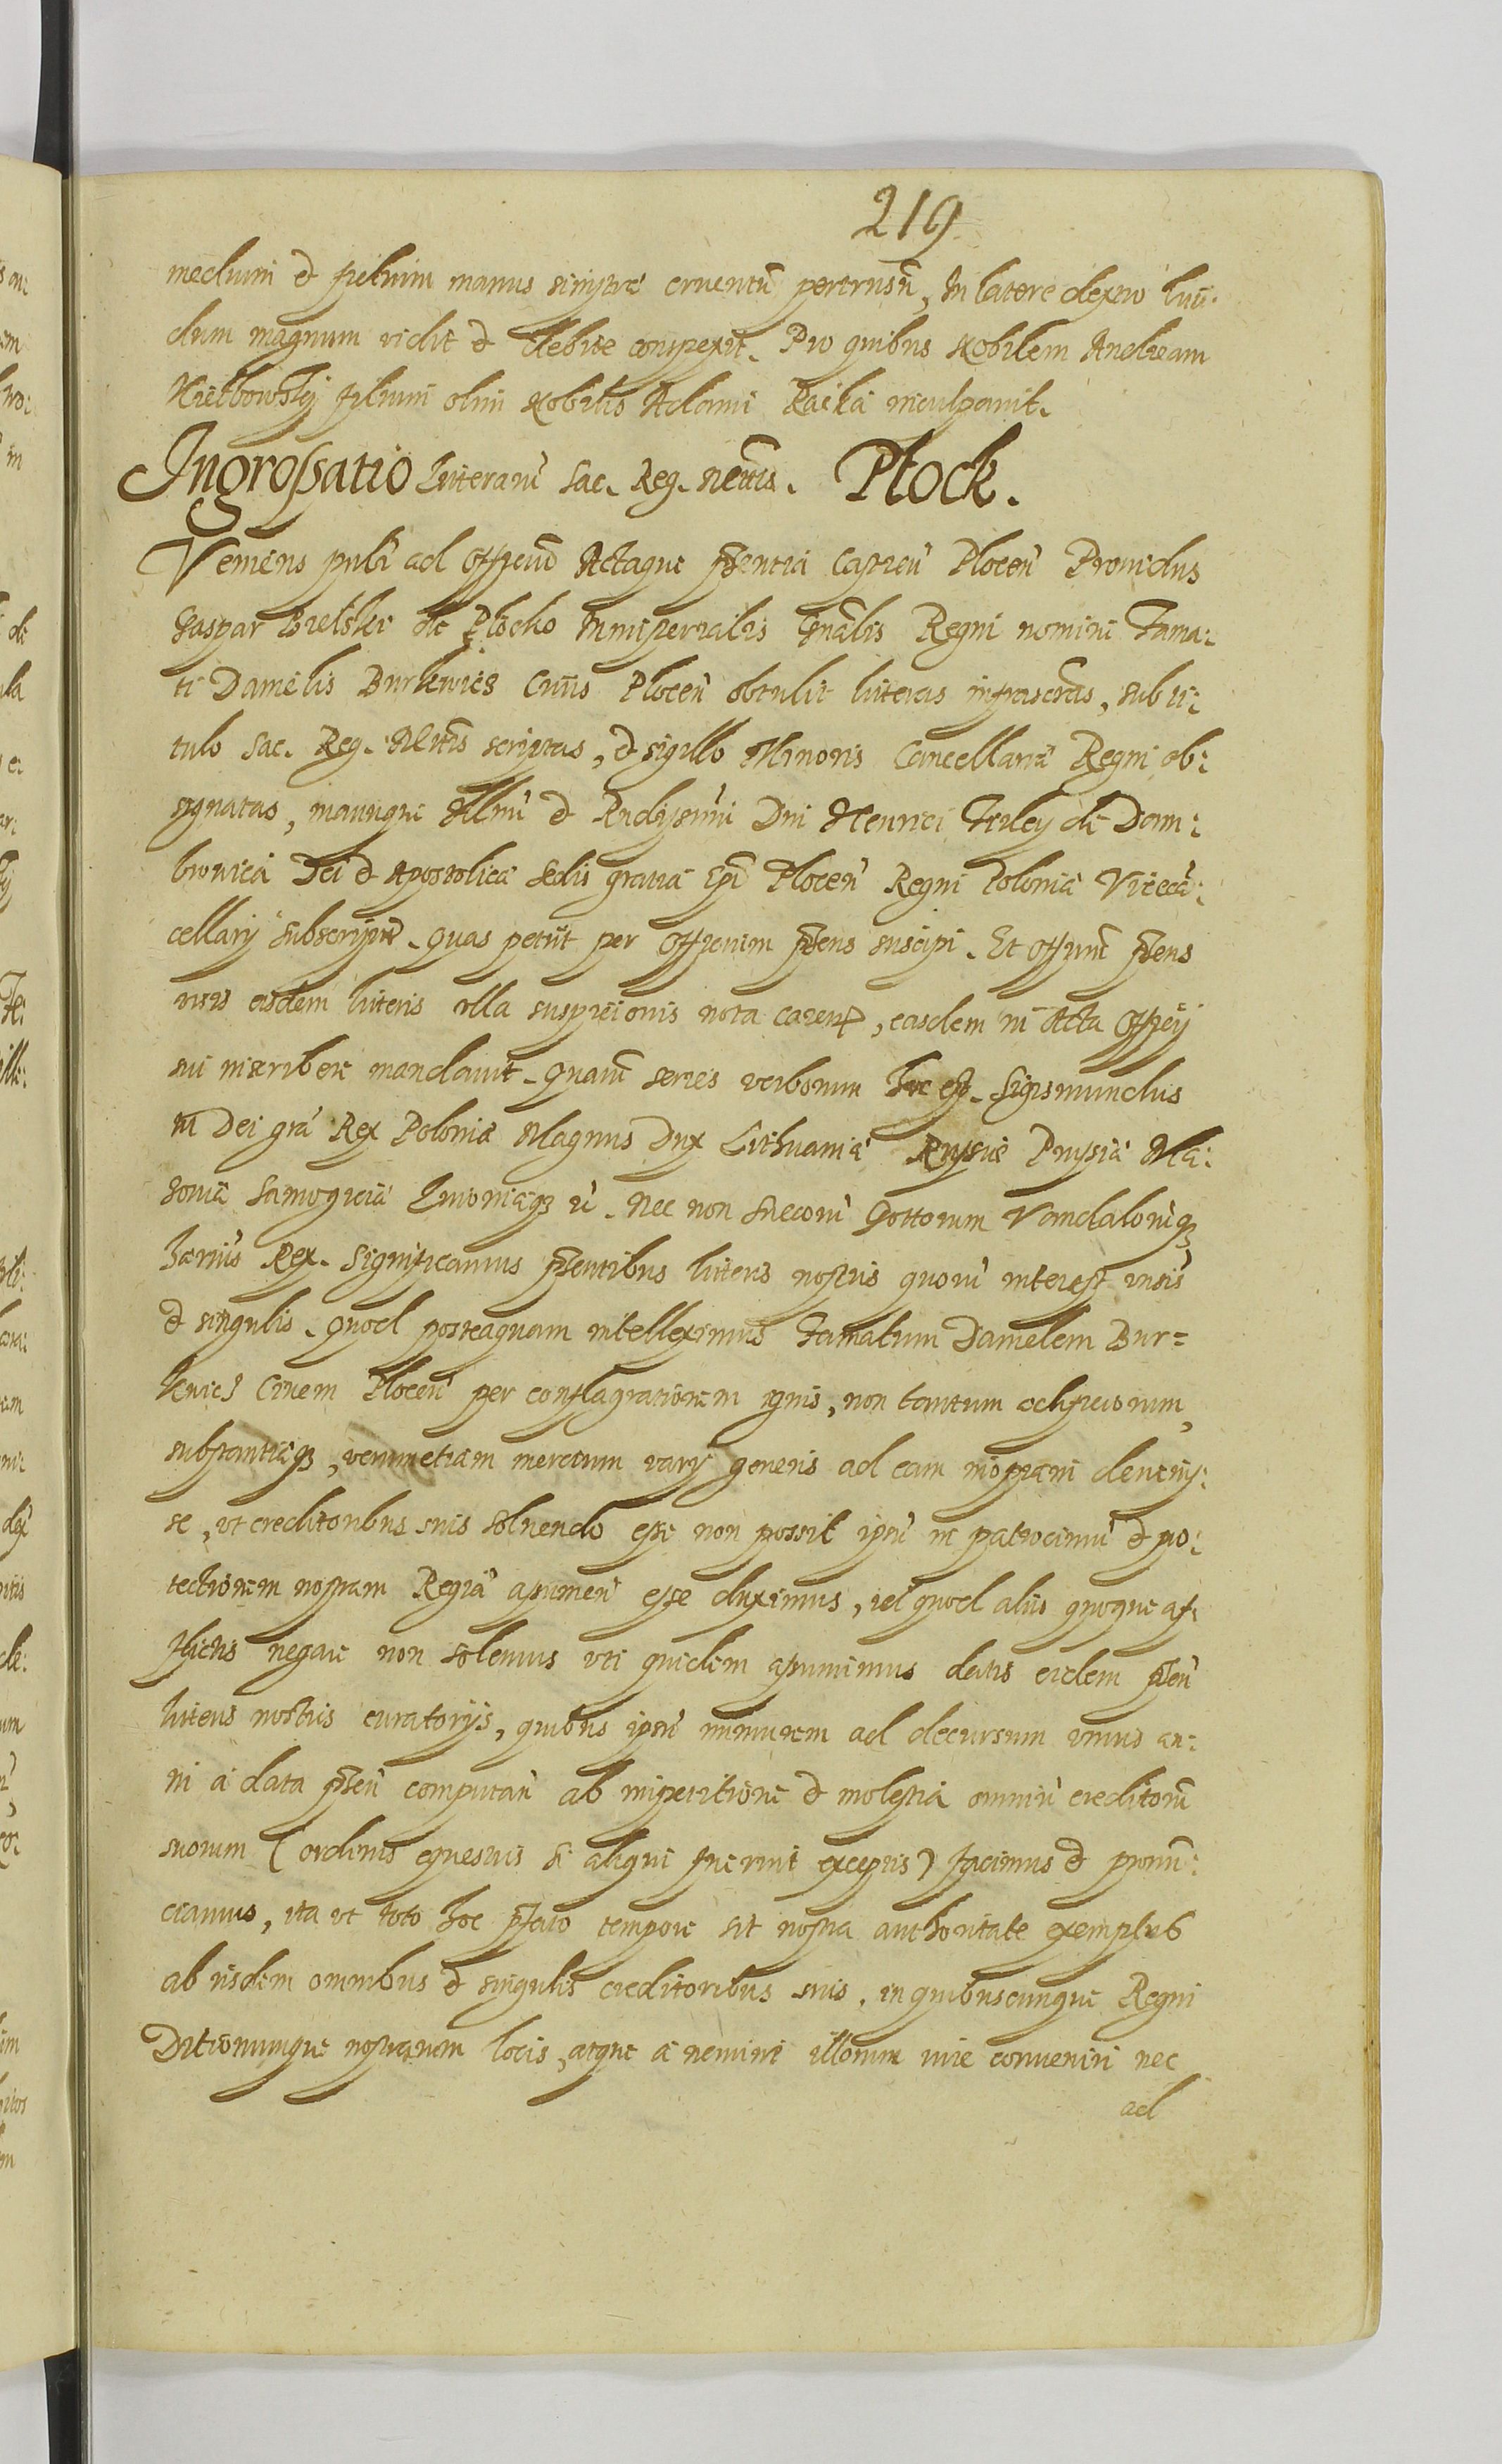 219
medium et pictum manus sinistræ cruentū pertrusū, In latere dextro livi:
dum magnum vidit et debite conspexit. Pro quibus Nobilem Andream
Kiełbowsky filium olim Nobilis Adami Racka inculpavit.
Ingrossatio Literarū Sac. Reg. Mttis. Płock.
Veniens publ ad Officiū Actaque pñtia Capteū Ploceñ Providus
Gaspar Bielski de Plocko Ministerialis Gnālis Regni nomine Fama:
ti Danielis Burkwicz Civis Ploceñ obtulit literas infrascrās, sub ti:
tulo Sac. Reg. Mttis scriptas, et sigillo Minoris Cancellariæ Regni ob:
signatas, manuque Illmi et Rndissimi Dni Henrici Firley de Dam:
browica Dei et Apostolica Sedis gratia Epi Plocen Regni Poloniæ Vicecā:
cellarij subscriptas. Quas petiit per Officium pñs suscipi. Et Officiū pñs
visis eisdem literis olla suspicionis nota caren, easdem in Acta Officij
sui inscribere mandavit. Quarū series verborum hæc est. Sigismundus
III Dei grā Rex Poloniæ Magnus Dux Lithuaniæ Russiæ Prussiæ Ma:
soviæ Samogitiæ Livoniæqȝ et. Nec non Suecorū Gottorum Vandalorūqȝ
hærius Rex. Significamus pñtibus literis nostris quorū interest vnis
et singulis. Quod posteaquam intelleximus Famatum Danielem Bur=
kwicz Civem Plocen per conflagrationem ignis, non tantum ædificiorum,
substantiæqȝ, verumetiam mercium varij generis ad eam inopiam devenis:
se, vt creditoribus suis solvendo esse non possit ipsū in patrocinū et pro:
tectionem nostram Regiā assumen esse duximus, id quod aliis quoque af:
flictis negare non solemus vti quidem assumimus datis eidem pñtū
literis nostris curatorijs, quibus ipsū immunem ad decursum vnius an:
ni a data pñtū computañ ab impetitione et molestia omniū creditorū
suorum (ordinis equestris si aliqui fuerint exceptis) facimus et pronū:
ciamus, ita vt toto hoc pfato tempore sit nostra authoritate exemptus
ab iisdem omnibus et singulis creditoribus suis, in quibuscunque Regni
Ditionumque nostrarum locis, atque a nemine illorum iure conveniri nec
ad